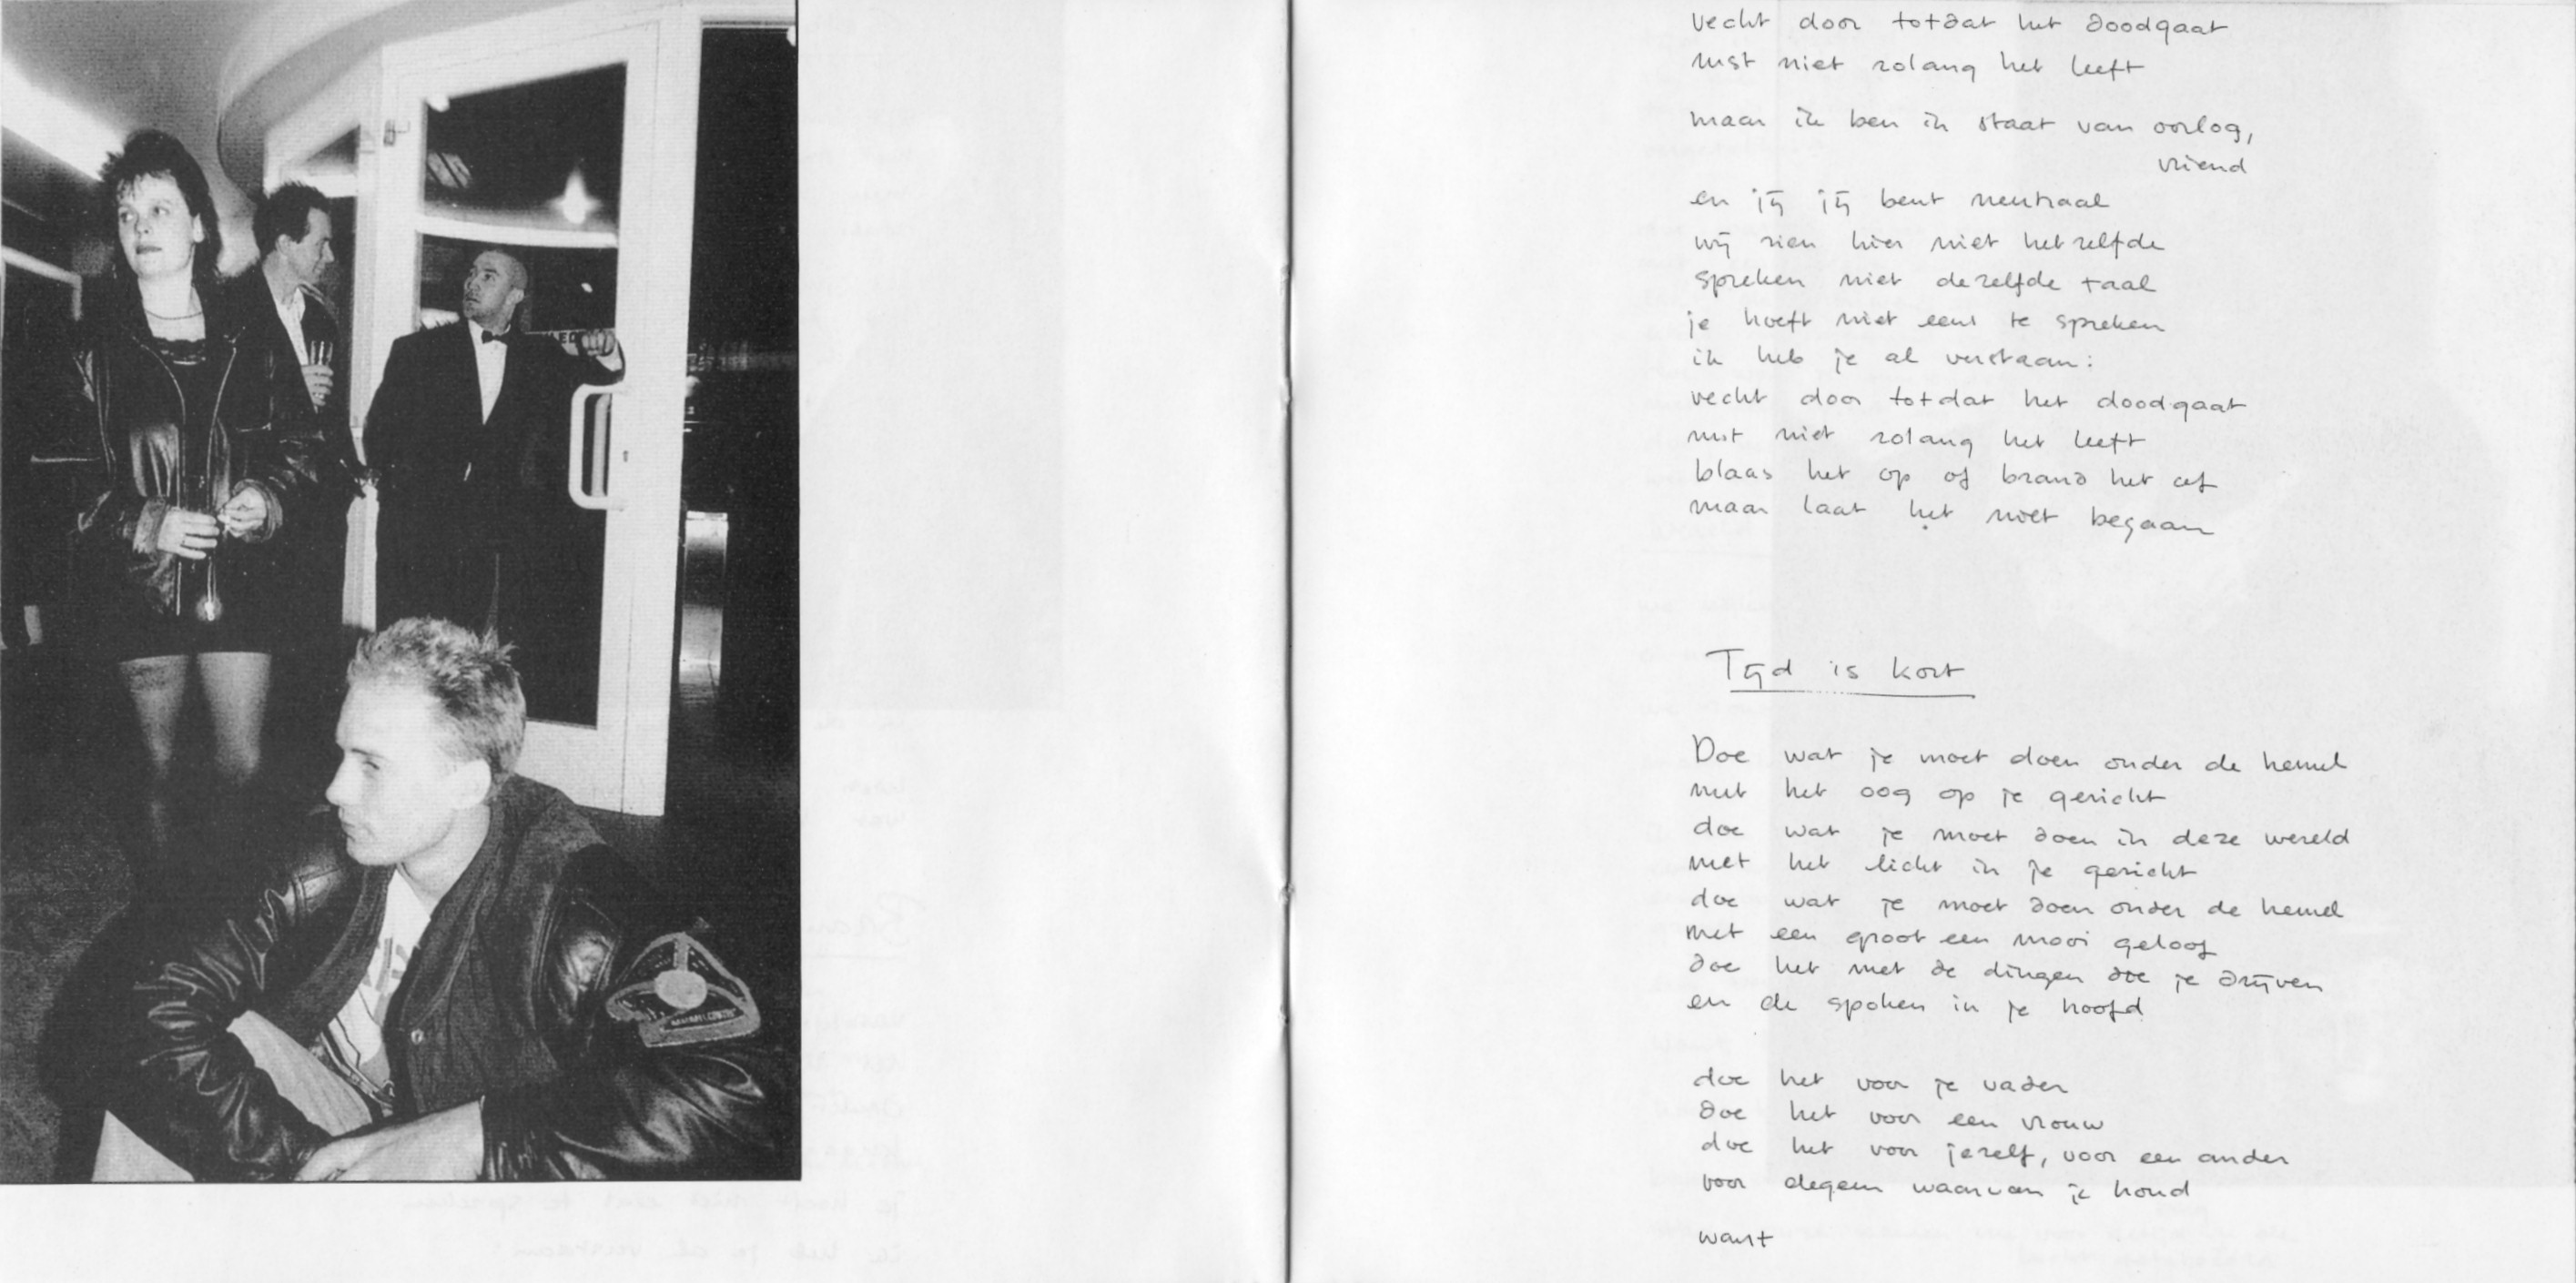 vecht door totdat het doodgaat
rust niet zolang het leeft
maar ik ben in staat van oorlog,
vriend
en jij jij bent neutraal
wij zien hier niet hetzelfde
spreken niet dezelfde taal
je hoeft niet eens te spreken
ik heb je al verstaan:
vecht door totdat het doodgaat
rust niet zolang het leeft
blaas het op of brand het af
maar laat het niet begaan
Tijd is kort
Doe wat je moet doen onder de hemel
met het oog op je gericht
doe wat je moet doen in deze wereld
met het licht in je gezicht
doe wat je moet doen onder de hemel
met een groot een mooi geloof
doe het met de dingen die je drijven
en de spoken in je hoofd
doe het voor je vader
doe het voor een vrouw
doe het voor jezelf, voor een ander
voor degeen waarvan je houd
want